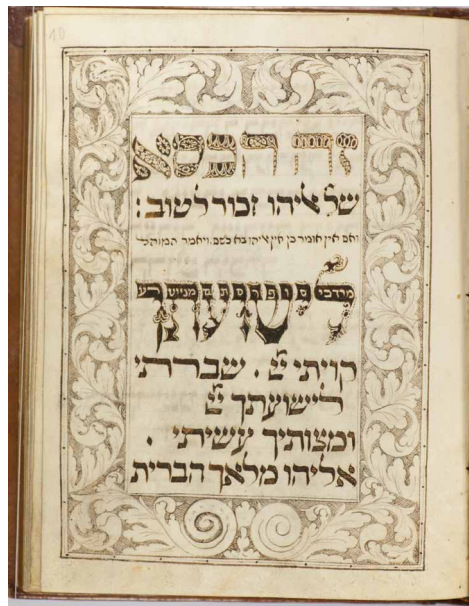 10
זה הכסא
של אליהו זכור לטוב:
ואם אין אומר כן אין אליהו בא לשם. ויאמר המוהל
לישועתך
קויתי יי . שברתי
לישועתך יי
ומצותיך עשיתי .
אליהו מלאך הברית